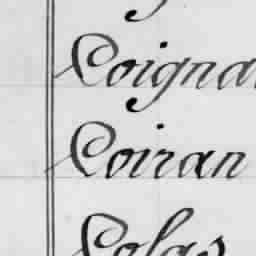 Coigna
Coiran
Colas